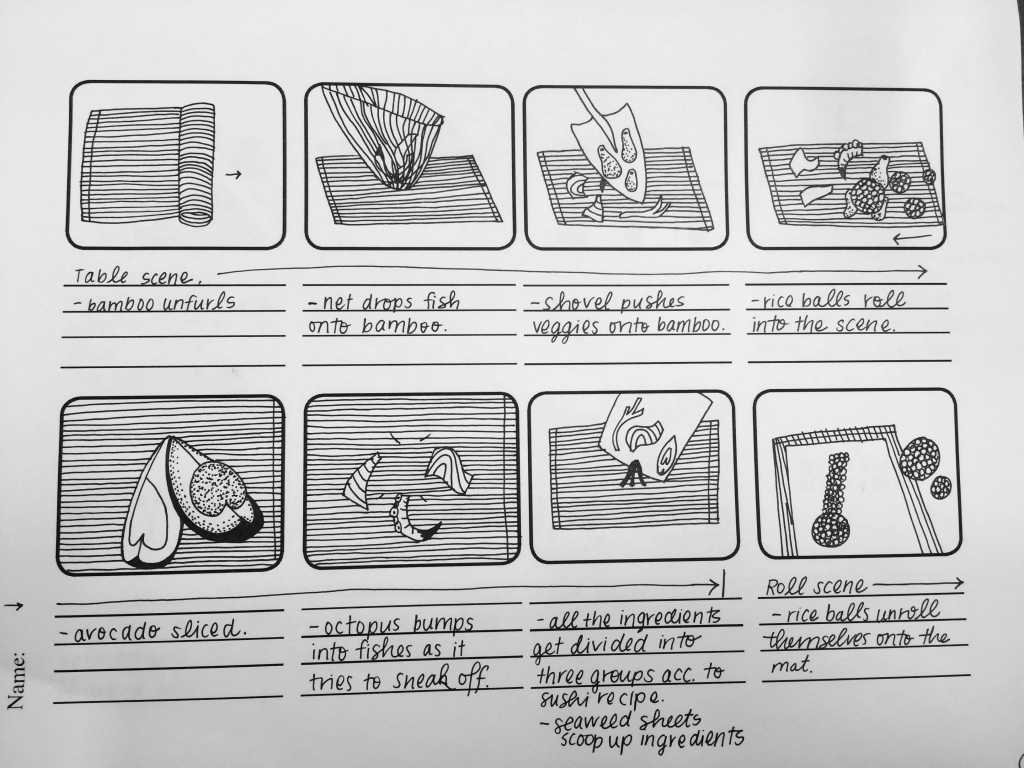 Table scene.
- bamboo unfurls
- net drops fish
onto bamboo.
- shovel pushes
veggies onto bamboo.
- rice balls roll
into the scene.
- avocado sliced.
- octopus bumps
into fishes as it
tries to sneak off.
- all the ingredients
get divided into
three groups acc. to
sushi recipe.
- seaweed sheets
scoop up ingredients
Roll scene
- rice balls unroll
themselves onto the
mat.
Name: